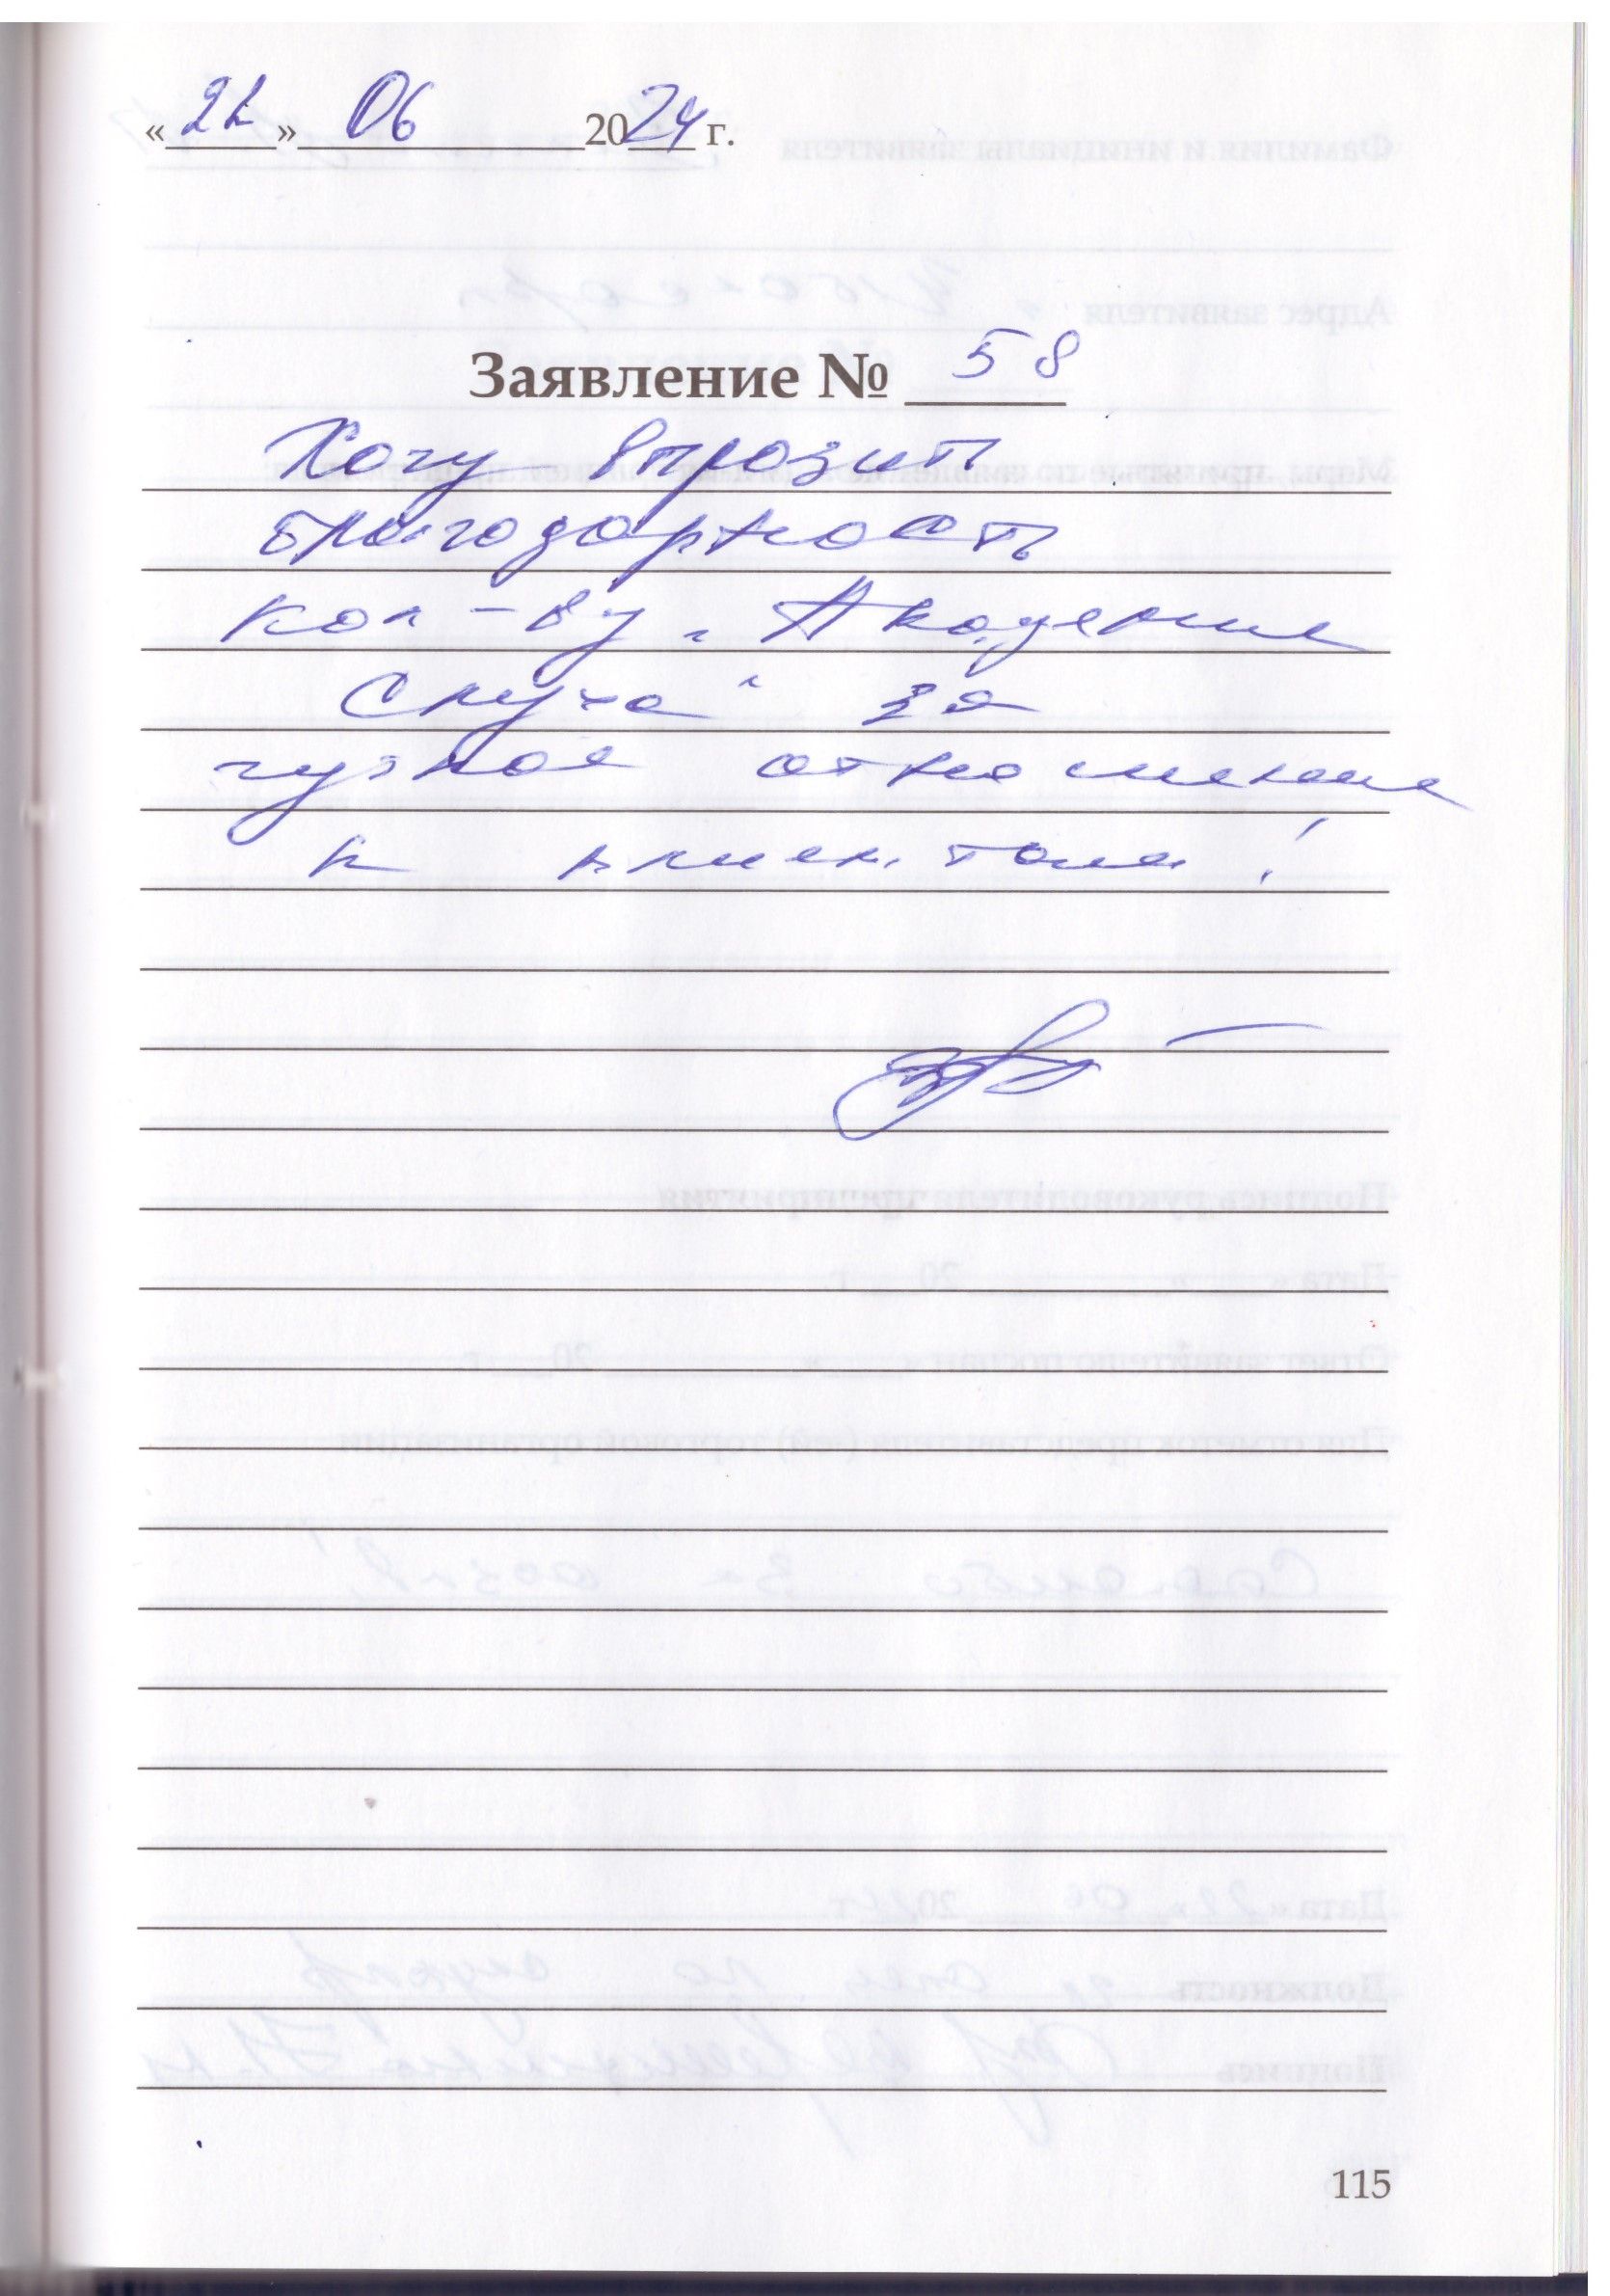 «22» 06 2024 г.
Заявление № 58
Хочу впразит
благодарность
кол-ву "Академие
Слуха" за
чузкое отношение
к клиентам!
115